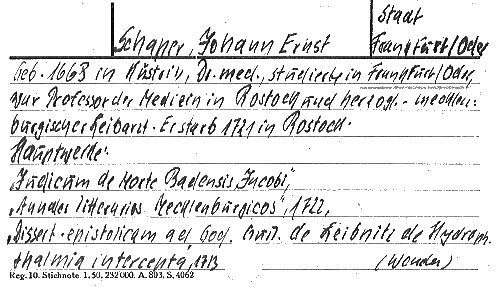 Stadt
Schaper, Johann Ernst Frankfurt/Oder
Geb. 1668 in Küstrin, Dr. med., studierte in Frankfurt/Oder,
war Professor der Medicin in Rostock und herzogl.-mecklen-
burgischer Leibarzt. Er starb 1721 in Rostock.
Hauptwerke:
"Judicum de Morte Badensis Jacobi",
"Annales litterarios Mecklenburgicos", 1722,
"Dissert. epistolicam ad God. Guil. de Leibnitz de Hydroph-
thalmia intercepta", 1713 (Wander)
Reg. 10. Stichnote. 1, 50, 232 000. A. 803, S. 4062